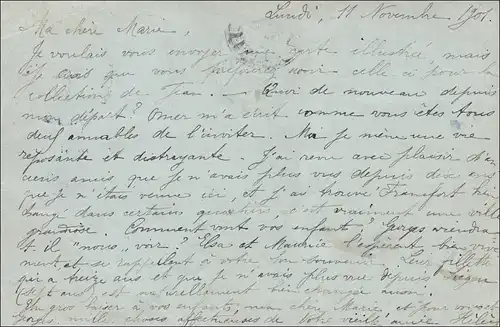 Lundi, 11 Novembre 1901.
Ma chère Marie,
Je voulais vous envoyer une carte illustrée, mais
je crois que vous préférez avoir celle ci pour la
collection de Jean. — Quoi de nouveau depuis
mon départ? Omer m'a écrit comme vous êtes tous
deux aimables de l'inviter. Ici je mène une vie
reposante et distrayante. J'ai revu avec plaisir d'an-
ciens amis que je n'avais plus vus depuis dix ans
que je n'étais venue ici, et j'ai trouvé Francfort bien
changé dans certains quartiers, c'est vraiment une ville
grandiose. Comment vont vos enfants? Georges viendra
t il "nous" voir? Elsa et Maurice l'espèrent bien vive
ment et se rappellent à votre bon souvenir. Leur fillette
qui a treize ans et que je n'avais plus vue depuis Liège
(sept ans) est naturellement bien changée aussi.
Un gros baiser à vos enfants, ma chère Marie, et pour vous et
Georges mille choses affectueuses de votre vieille amie